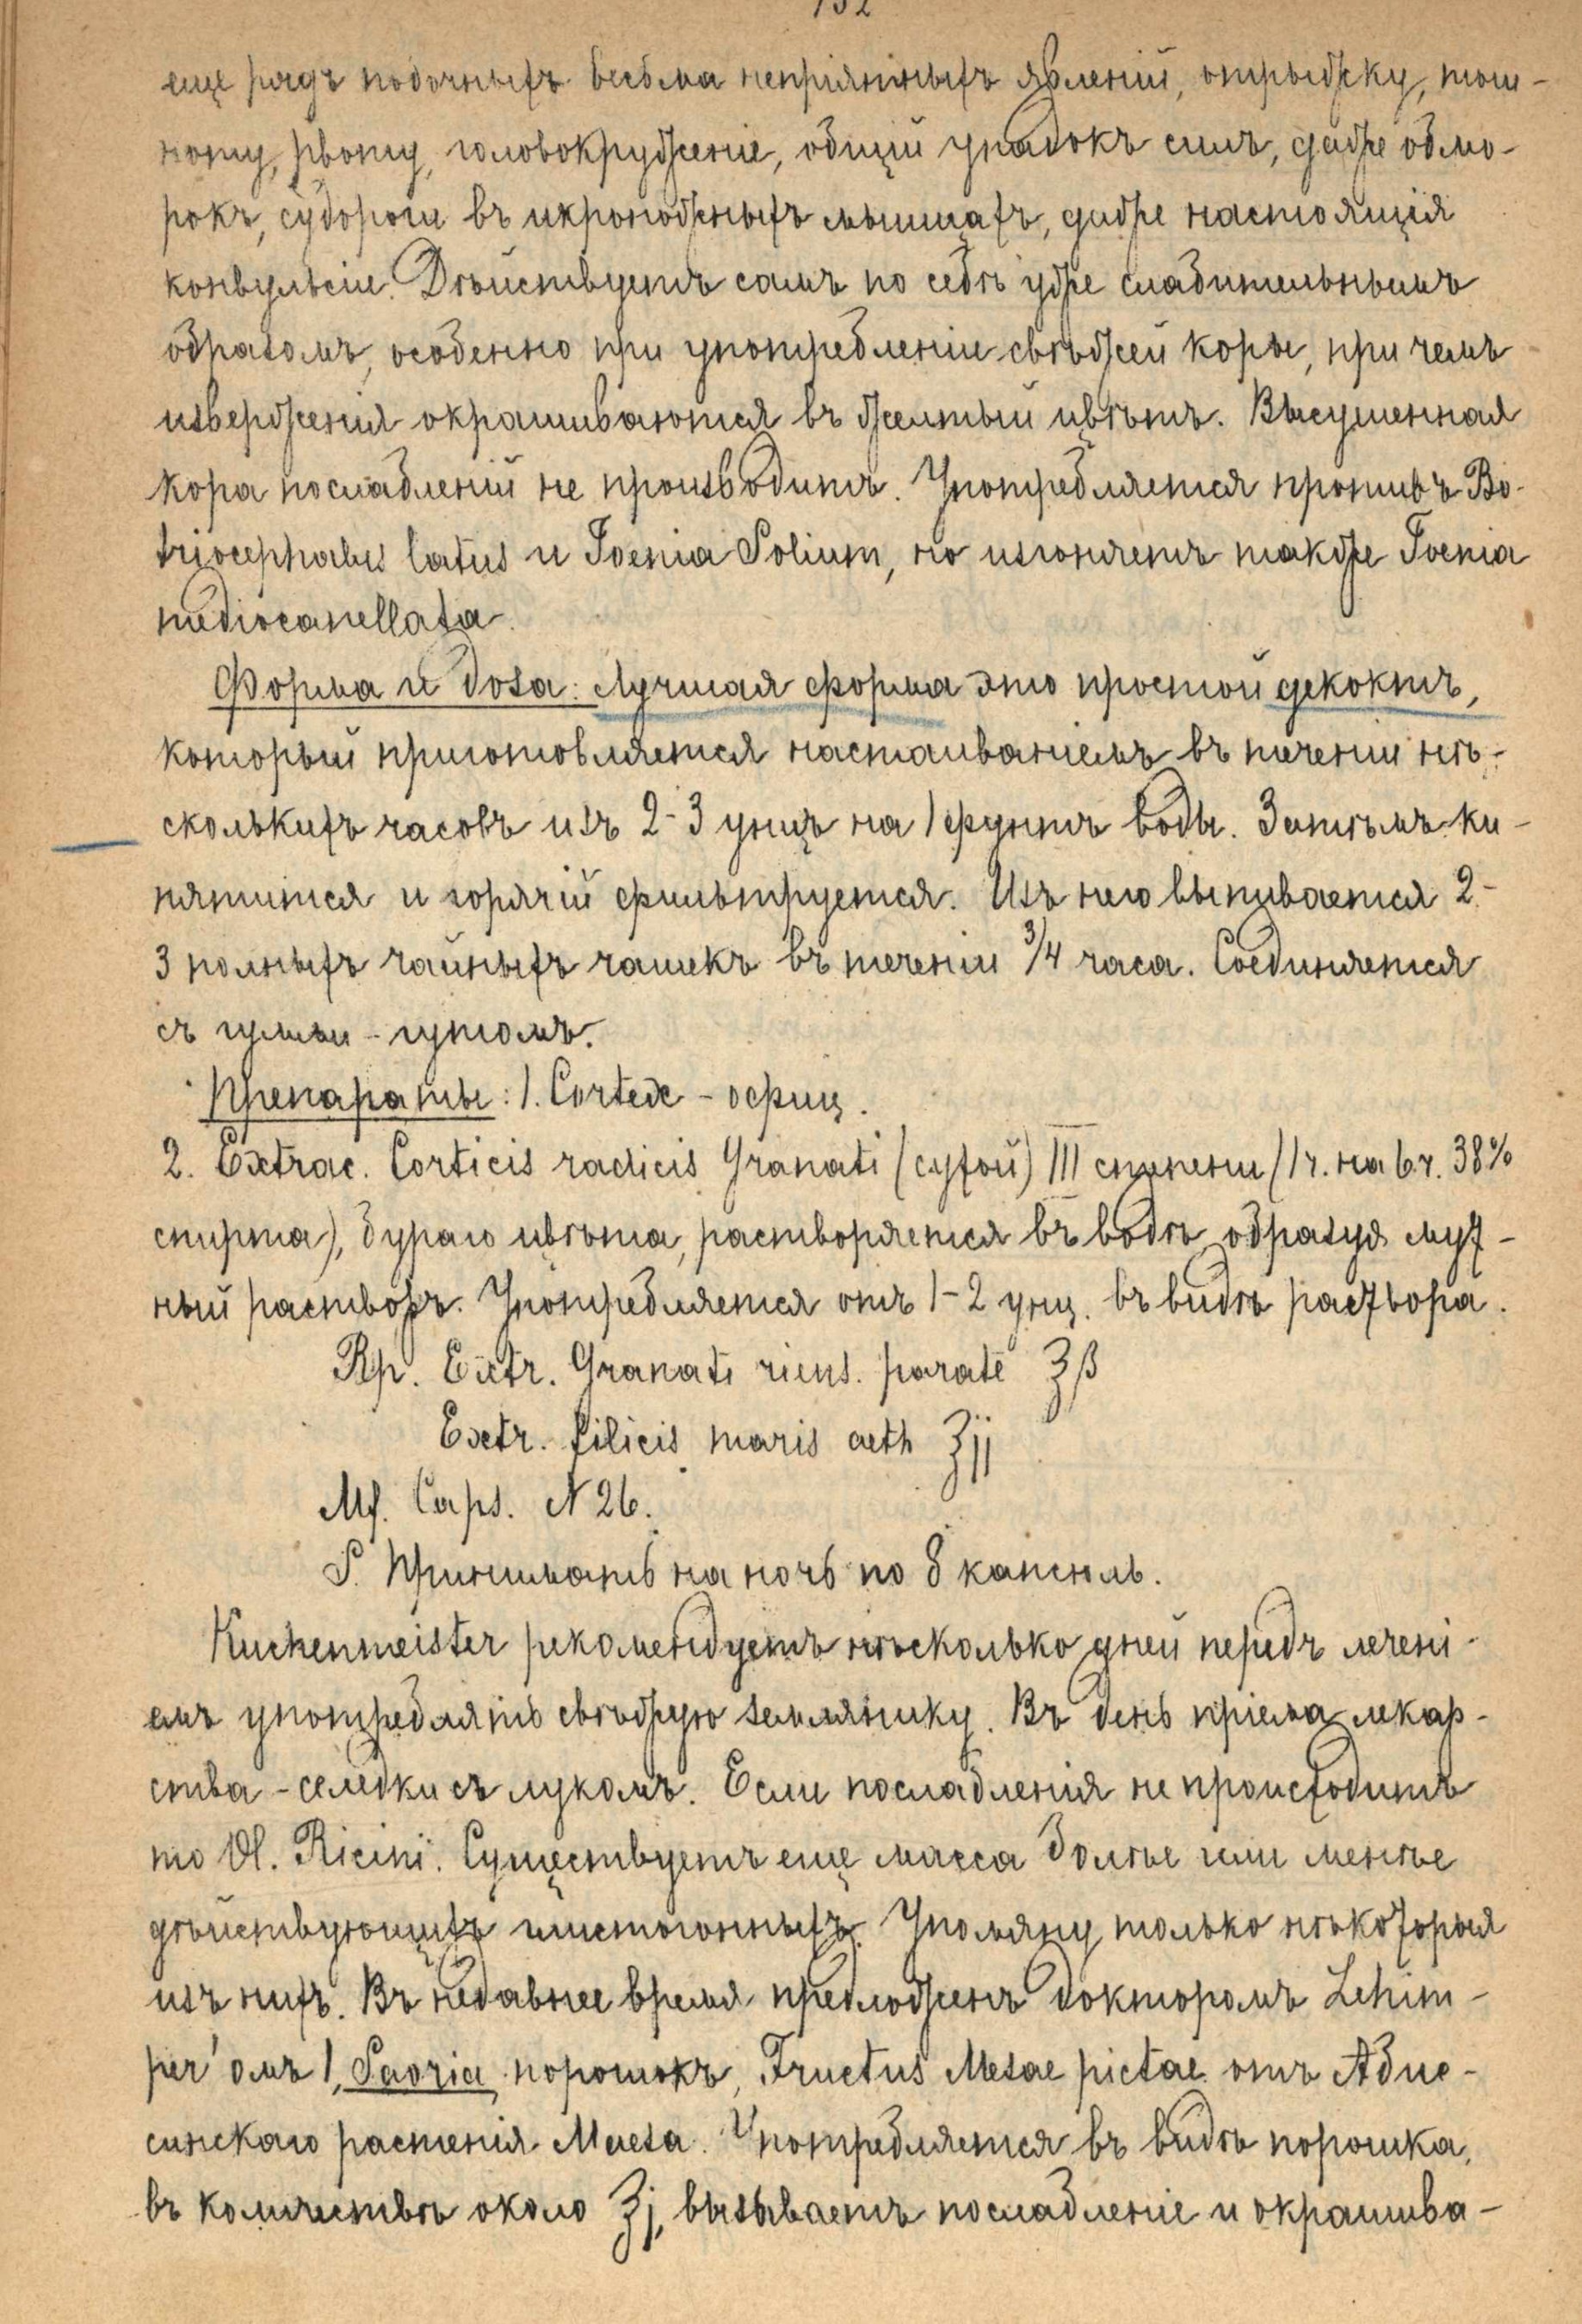 132
еще рядъ побочныхъ весьма непріятныхъ явленій, отрыжку, тош-
ноту, рвоту, головокруженіе, общій упадокъ силъ, даже обмо-
рокъ, судороги въ икроножныхъ мышцахъ, даже настоящія
конвульсіи. Дѣйствуетъ самъ по себѣ уже слабительнымъ
образомъ, особенно при употребленіи свѣжей коры, при чемъ
изверженія окрашиваются въ желтый цвѣтъ. Высушенная
кора послабленій не производитъ. Употребляется противъ Bo-
triocephalus latus и Toenia Solium, но изгоняетъ также Toenia
mediocanellata.
Форма и доза: Лучшая форма это простой декоктъ,
который приготовляется настаиваніемъ въ теченіи нѣ-
сколькихъ часовъ изъ 2-3 унцъ на 1 фунтъ воды. Затѣмъ ки-
пятится и горячій фильтруется. Изъ него выпивается 2-
3 полныхъ чайныхъ чашекъ въ теченіи 3/4 часа. Соединяется
съ гумми-гутомъ.
Препараты: 1. Cortex - офиц.
2. Extrac. Corticis radicis Granati (сухой) III степени (1 ч. на 6 ч. 38%
спирта), бураго цвѣта, растворяется въ водѣ образуя мут-
ный растворъ. Употребляется отъ 1-2 унц. въ видѣ раствора.
Rp. Extr. Granati recens. parate ℥β
Extr. filicis maris aeth ʒjj
Mf. Caps. N 26.
S. Принимать на ночь по 8 капсюль.
Kuchenmeister рекомендуетъ нѣсколько дней передъ лечені-
емъ употреблять свѣжую землянику. Въ день пріема лекар-
ства - селедки съ лукомъ. Если послабленія не происходитъ
то Ol. Ricini. Существуетъ еще масса болѣе или менѣе
дѣйствующихъ глистогонныхъ. Упомяну только нѣкоторыя
изъ нихъ. Въ недавнее время предложенъ докторомъ Schim-
per'омъ 1, Saoria порошокъ, Fructus Mesae pictae отъ Абис-
синскаго растенія Maesa. Употребляется въ видѣ порошка,
въ количествѣ около ℥j, вызываетъ послабленіе и окрашива-